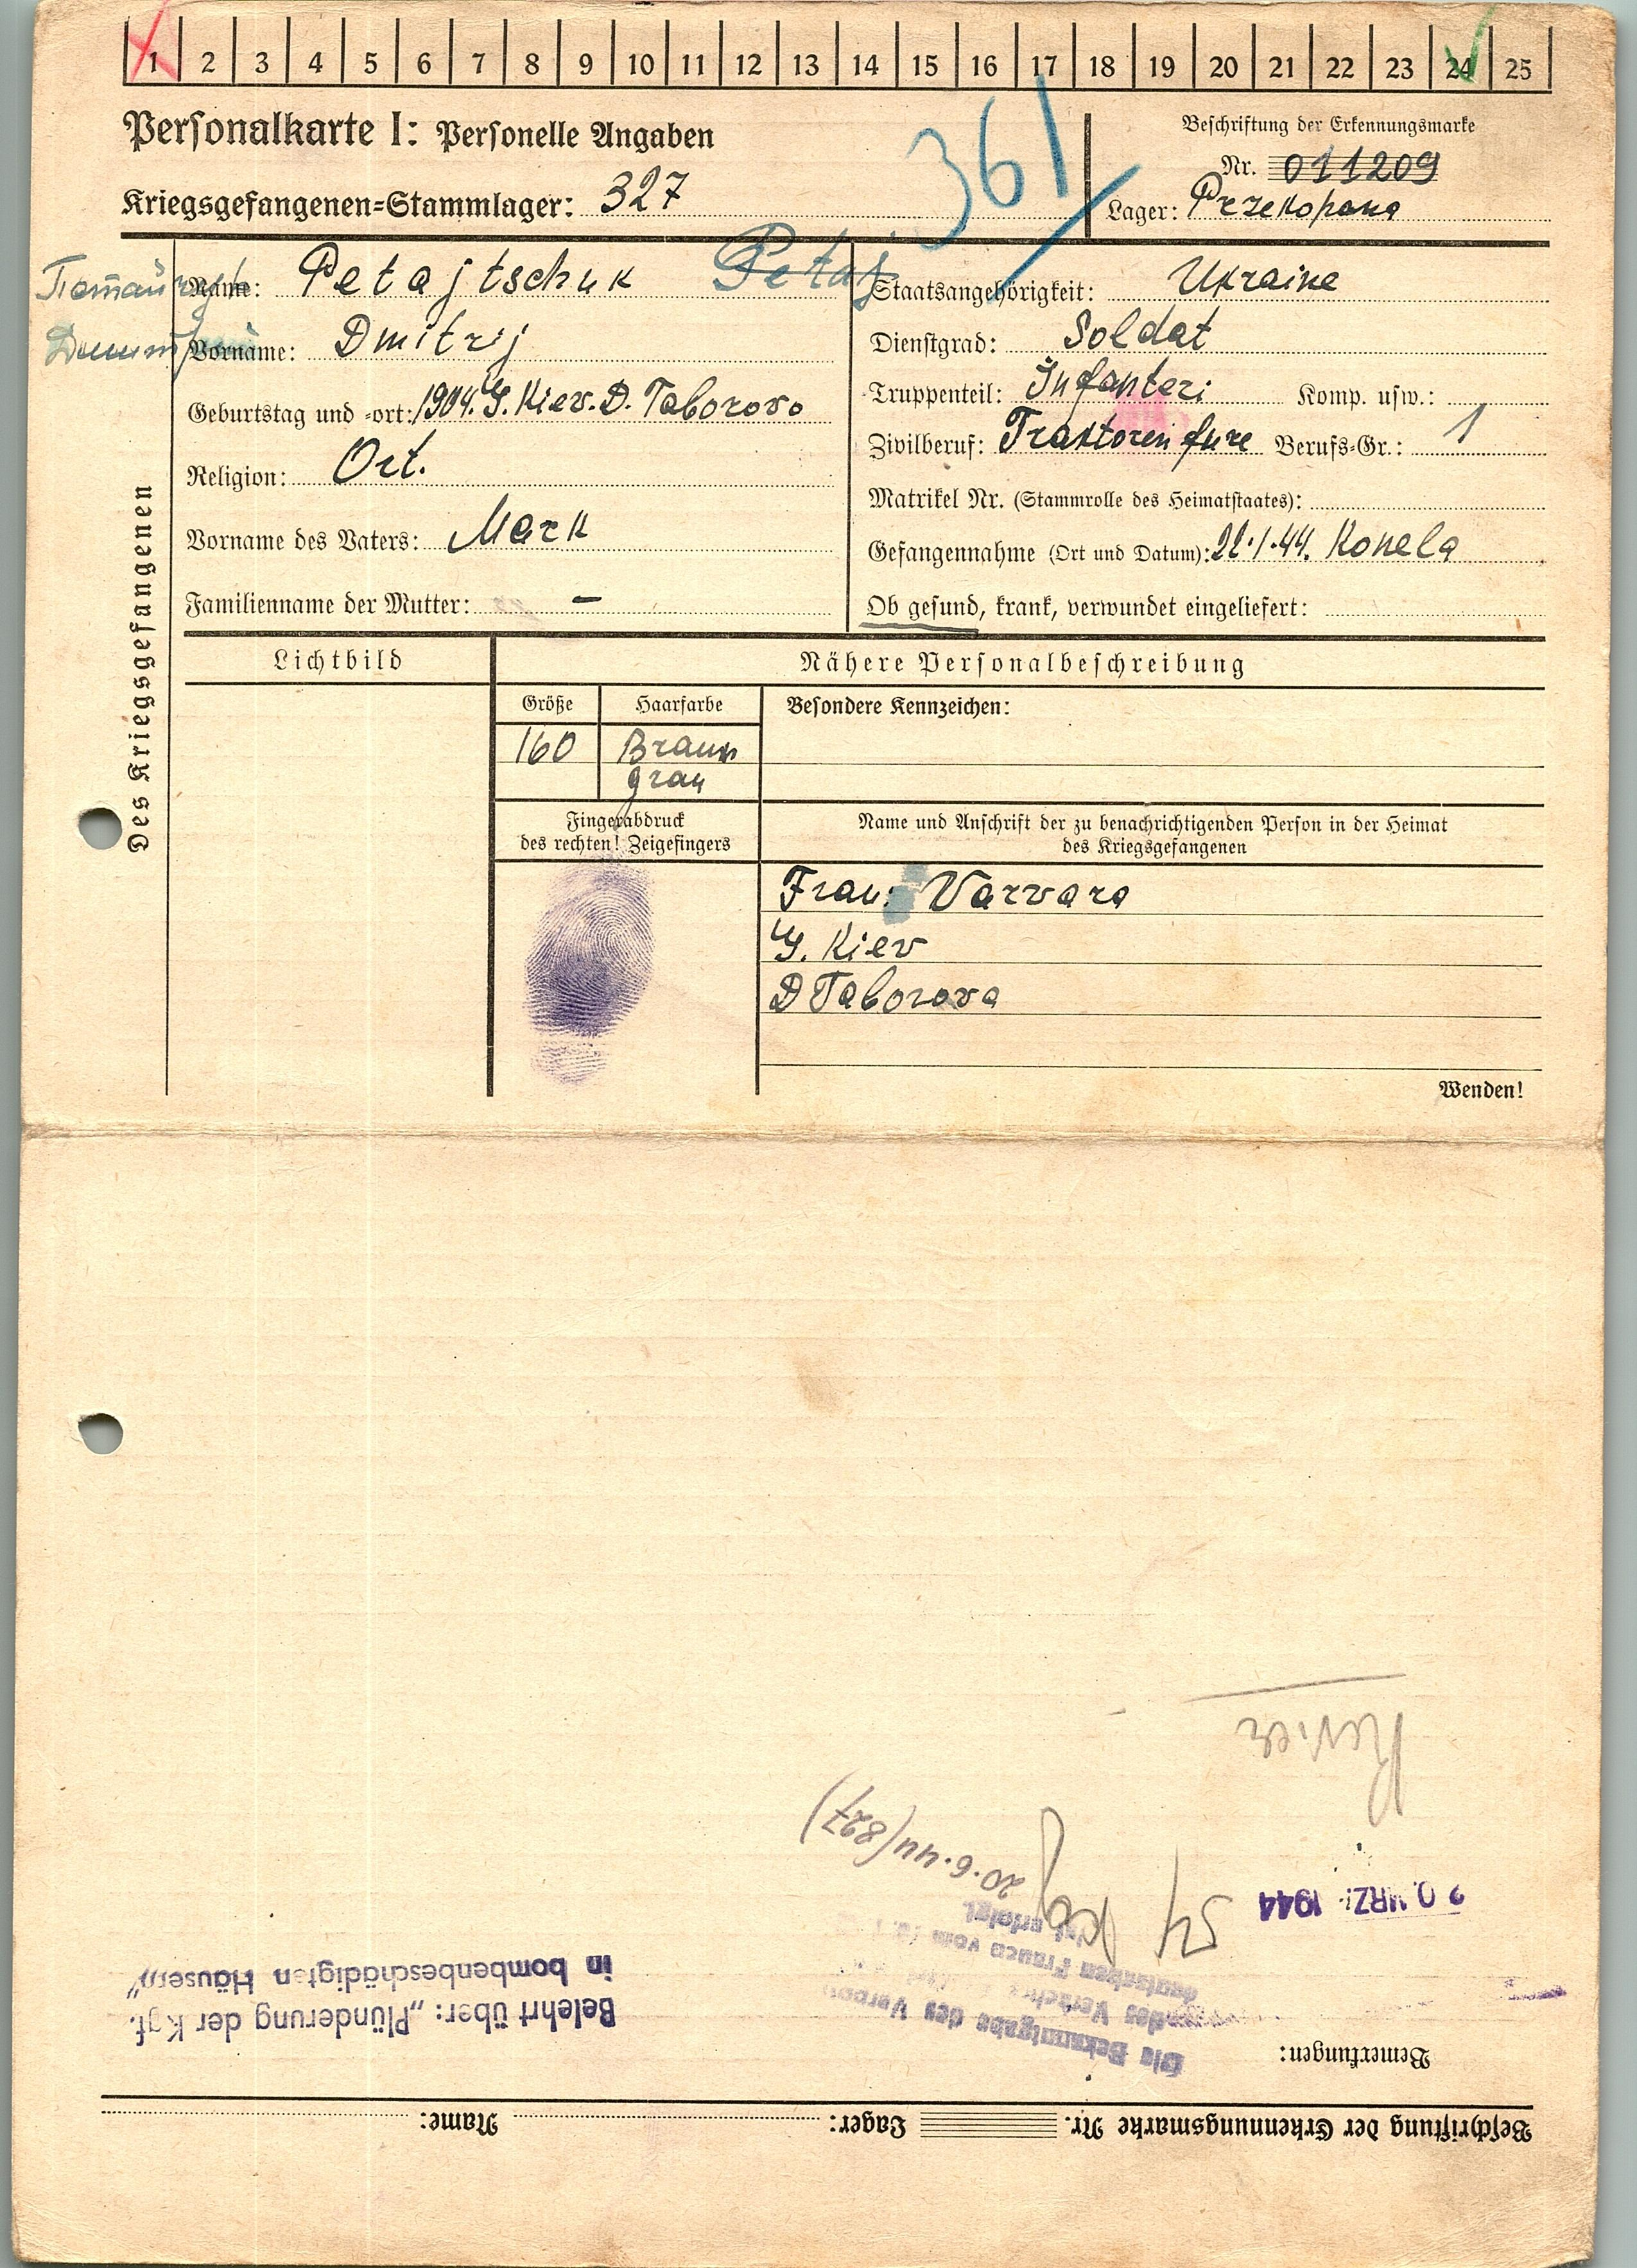 1 2 3 4 5 6 7 8 9 10 11 12 13 14 15 16 17 18 19 20 21 22 23 24 25
Personalkarte I: Personelle Angaben
361
Beschriftung der Erkennungsmarke
Nr. 011209
Kriegsgefangenen=Stammlager: 327
Lager: Przekopana
Des Kriegsgefangenen
Name: Petajtschuk Petaj
Vorname: Dmitrij
Geburtstag und =ort: 1904. G. Kiev. D. Taborovo
Religion: Ort.
Vorname des Vaters: Mark
Familienname der Mutter: —
Staatsangehörigkeit: Ukraine
Dienstgrad: Soldat
Truppenteil: Infanteri Komp. usw.:
Zivilberuf: Traktoren fure Berufs=Gr.: 1
Matrikel Nr. (Stammrolle des Heimatstaates):
Gefangennahme (Ort und Datum): 22.1.44. Konela
Ob gesund, krank, verwundet eingeliefert:
Lichtbild
Nähere Personalbeschreibung
Größe
Haarfarbe
Besondere Kennzeichen:
160
Braun
grau
Fingerabdruck
des rechten! Zeigefingers
Name und Anschrift der zu benachrichtigenden Person in der Heimat
des Kriegsgefangenen
Frau: Varvara
G. Kiev
D Taborova
Wenden!
Beschriftung der Erkennungsmarke Nr. Lager: Name:
Bemerkungen:
Die Bekanntgabe des
deutschen Frauen vom
ist erfolgt.
20.6.44 (827)
Belehrt über: „Plünderung der Kgf.
in bombenbeschädigten Häusern"
MRZ. 1944
Revier